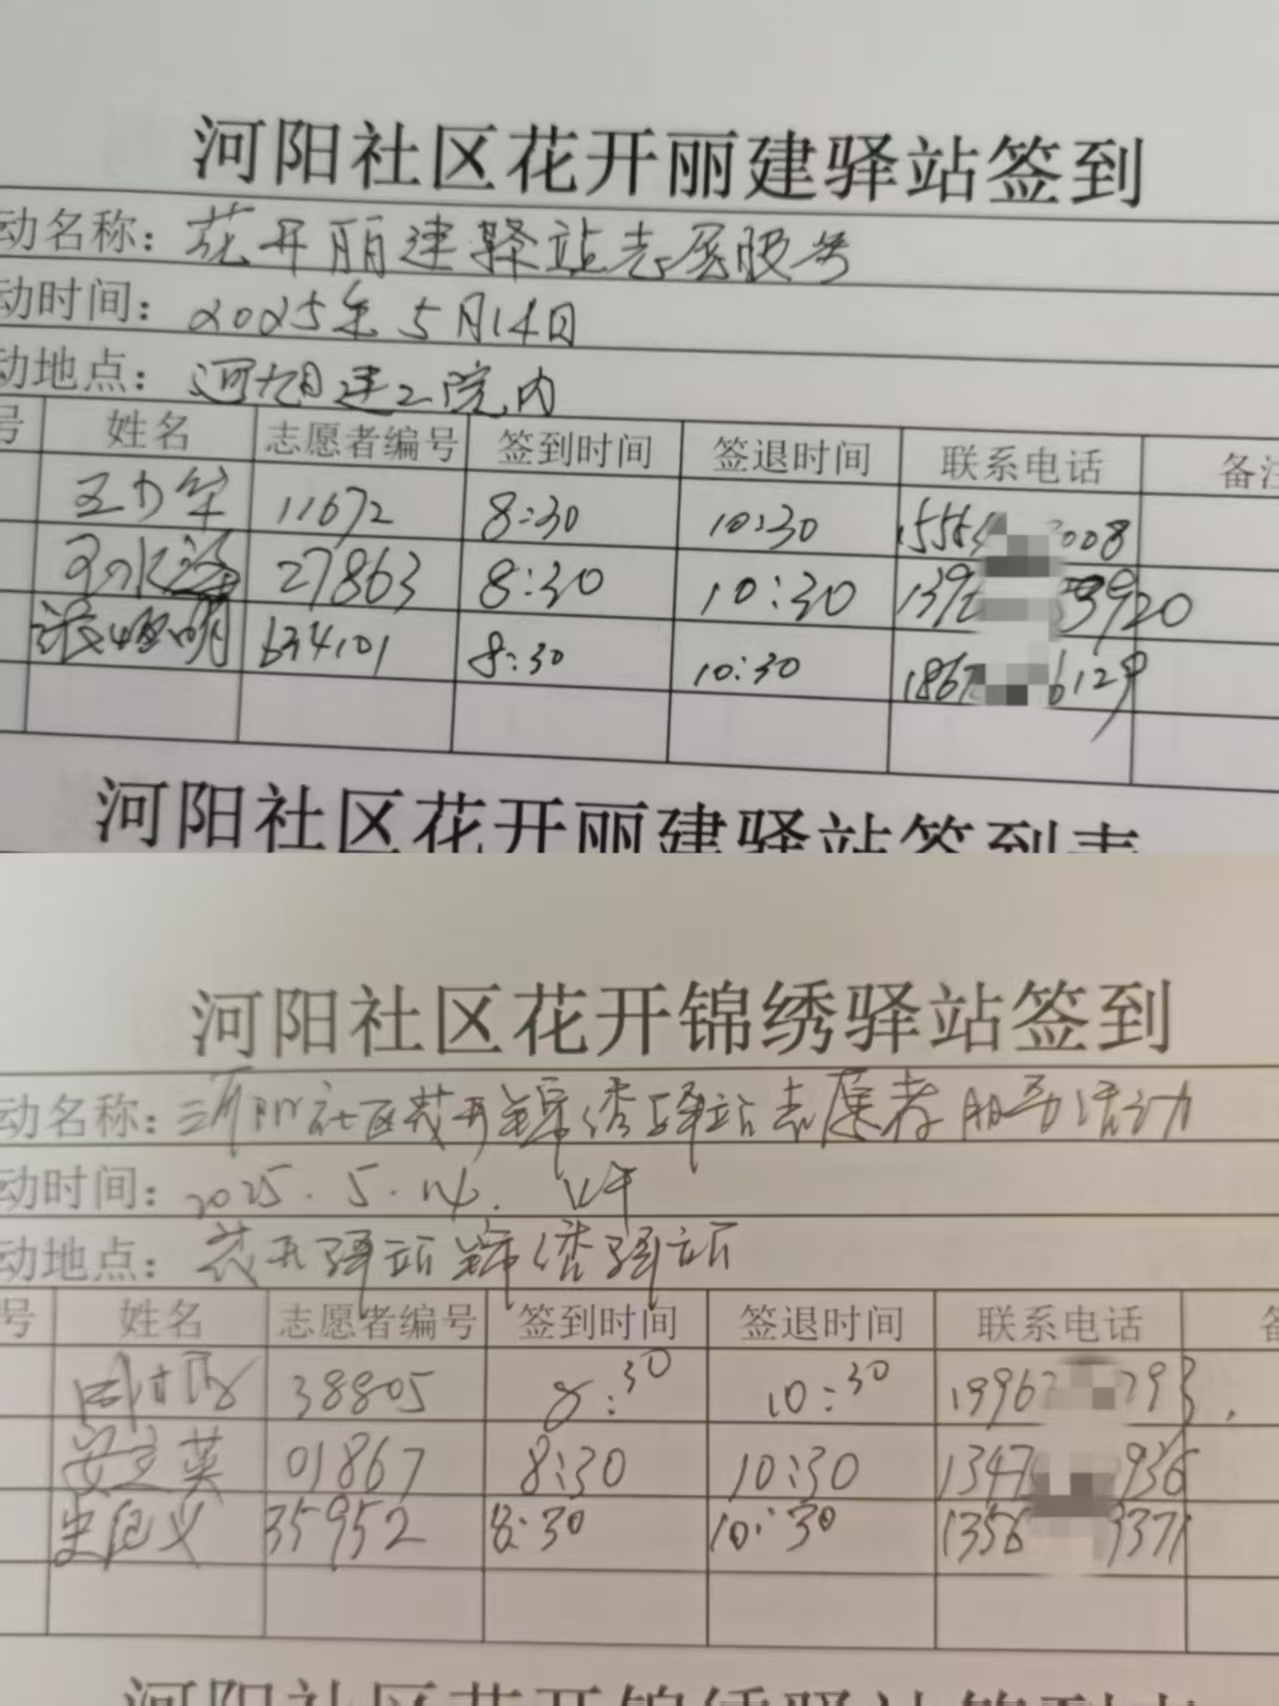 河阳社区花开丽建驿站签到
动名称：花开丽建驿站志愿服务
动时间：2025年5月14日
动地点：河阳建工院内
号 姓名 志愿者编号 签到时间 签退时间 联系电话 备注
11672 8:30 10:30 1555 3008
27863 8:30 10:30 139 3920
634101 8:30 10:30 1867 6129
河阳社区花开丽建驿站签到表
河阳社区花开锦绣驿站签到
动名称：河阳社区花开锦绣驿站志愿者服务活动
动时间：2025.5.14. 上午
动地点：花开驿站锦绣驿站
号 姓名 志愿者编号 签到时间 签退时间 联系电话 备
38805 8:30 10:30 1996 293
安立英 01867 8:30 10:30 1347 936
35952 8:30 10:30 1356 9371
河阳社区花开锦绣驿站签到表